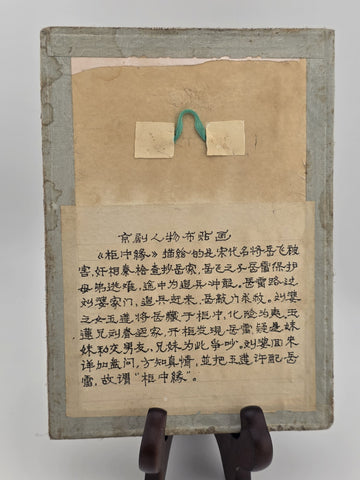 京剧人物布贴画
《柜中缘》描绘的是宋代名将岳飞被
害，奸相秦桧查抄岳家，岳飞之子岳雷保护
母弟逃难，途中为追兵冲散。岳雷路过
刘婆家门，追兵赶来，岳敲门求救。刘婆
之女玉莲将岳藏于柜中，化险为夷。玉
莲兄刘春返家，开柜发现岳雷，疑是妹
妹私交男友，兄妹为此争吵。刘婆回来
详加盘问，方知真情，並把玉莲许配岳
雷，故谓“柜中緣”。